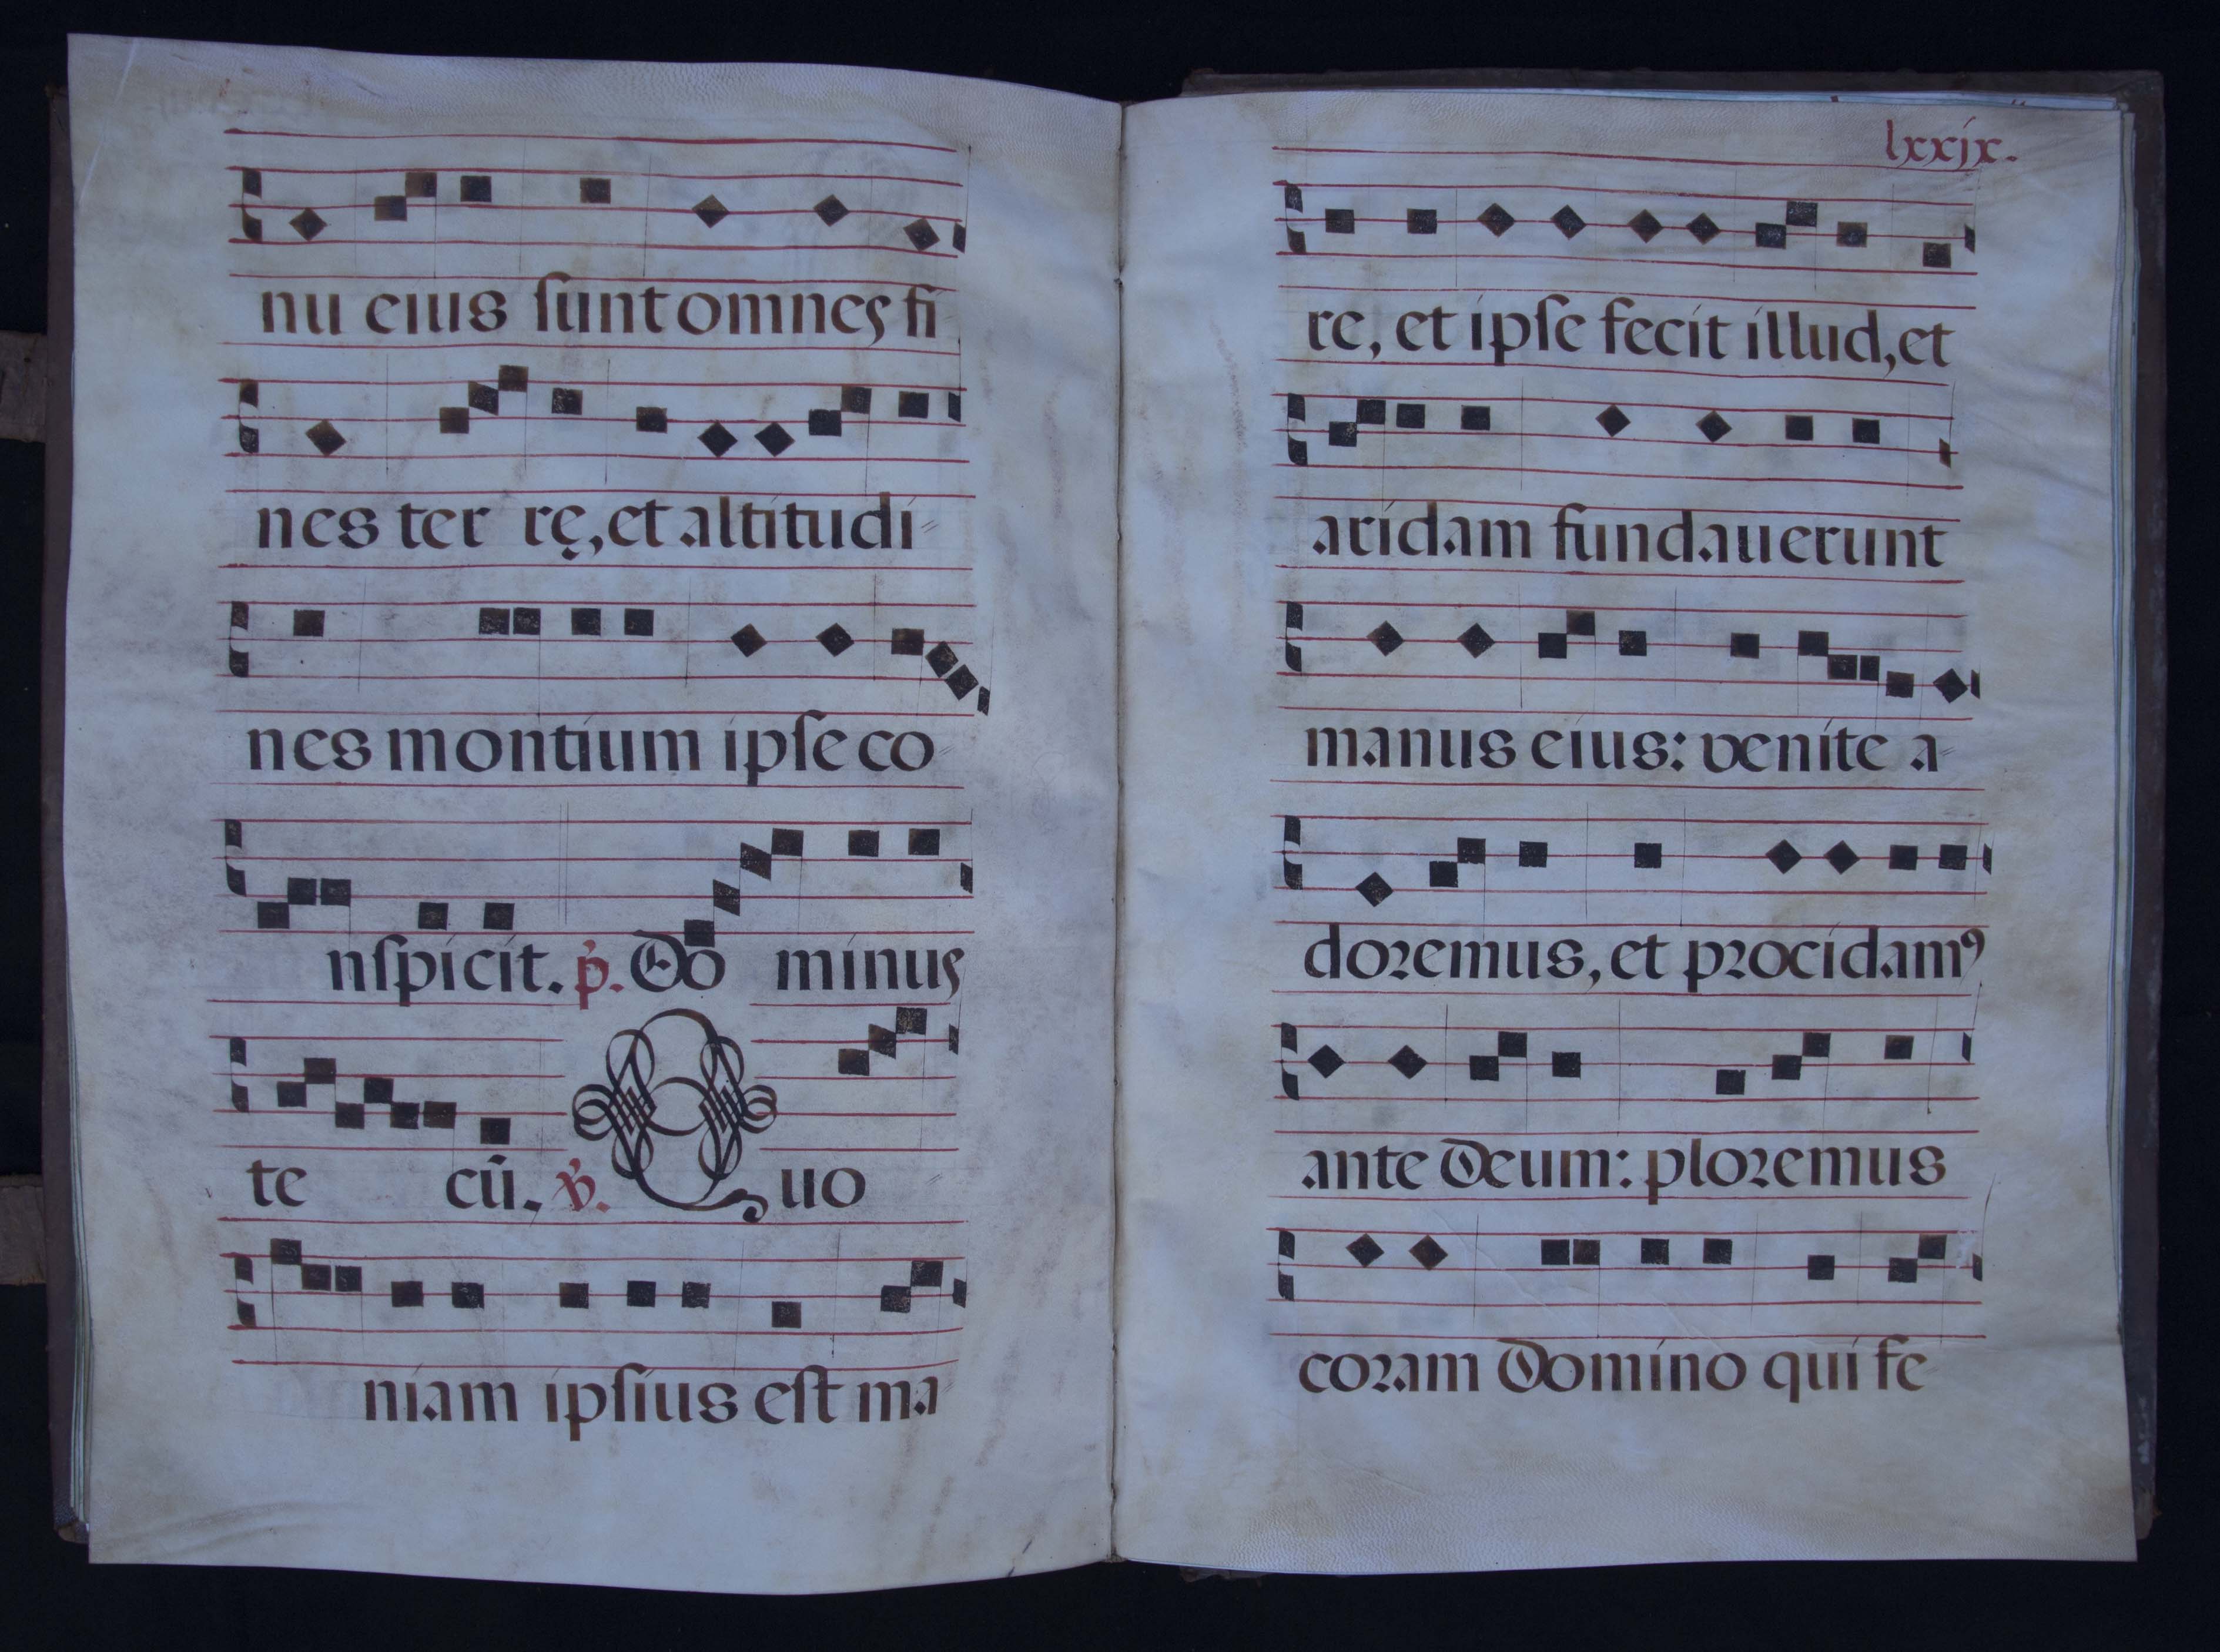 nu eius ſunt omnes fi
nes ter rę, et altitudi=
nes montium ipſe co=
nſpicit. p̛. Do minus
te cū. v̛. Quo
niam ipſius eſt ma
lxxjx.
re, et ipſe fecit illud, et
aridam fundauerunt
manus eius: venite a=
doꝛemus, et pꝛocidamꝰ
ante Deum: ploꝛemus
coꝛam Domino qui fe